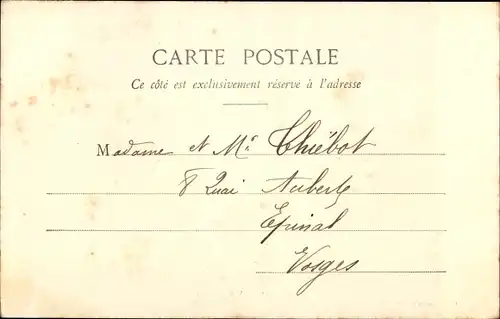 CARTE POSTALE
Ce côté est exclusivement réservé à l'adresse
Madame et Mr Thiébot
8 Quai Auberts
Epinal
Vosges